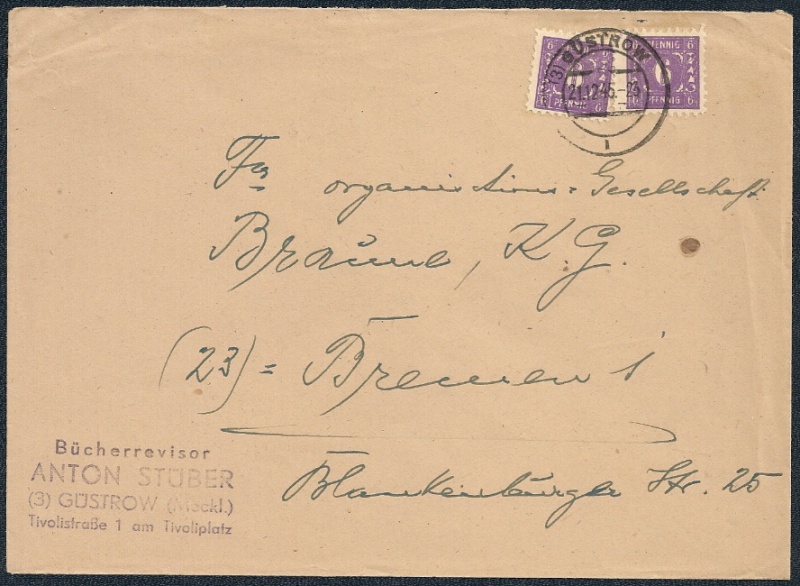 6 PFENNIG 6
6 PFENNIG 6
(3) GÜSTROW
21.12.45.-
1
Fa organisations=Gesellschaft
Braune, K.G.
(23)= Bremen 1
Blankenburger Str. 25
Bücherrevisor
ANTON STÜBER
(3) GÜSTROW (Meckl.)
Tivolistraße 1 am Tivoliplatz